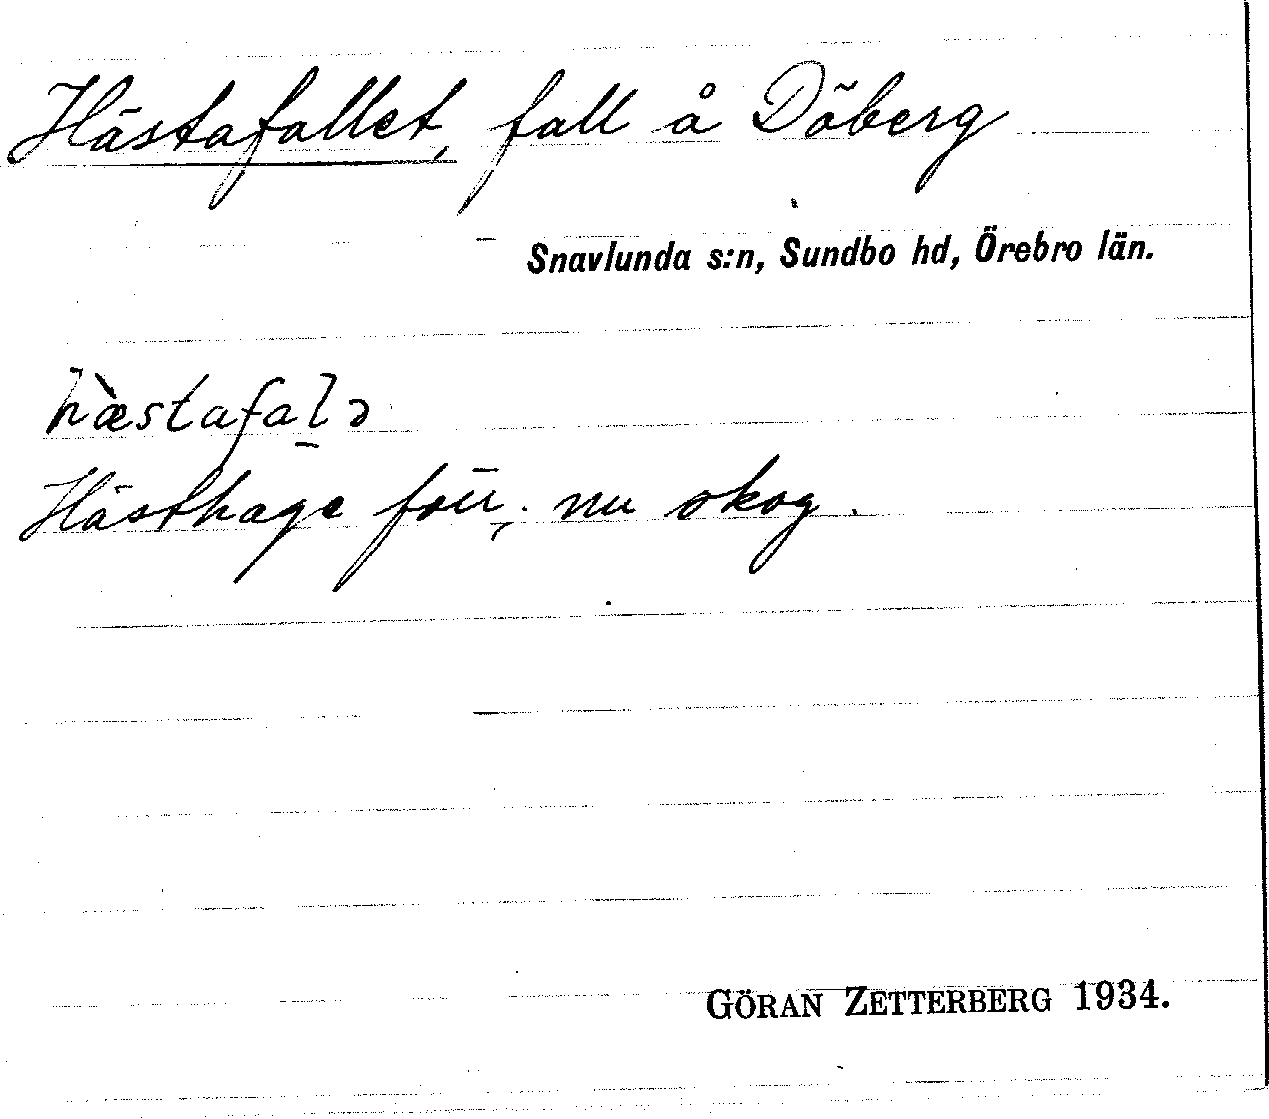 Hästafallet, fall å Döberg
Snavlunda s:n, Sundbo hd, Örebro län.
hæ̀stafalə
Hästhage förr, nu skog.
GÖRAN ZETTERBERG 1934.